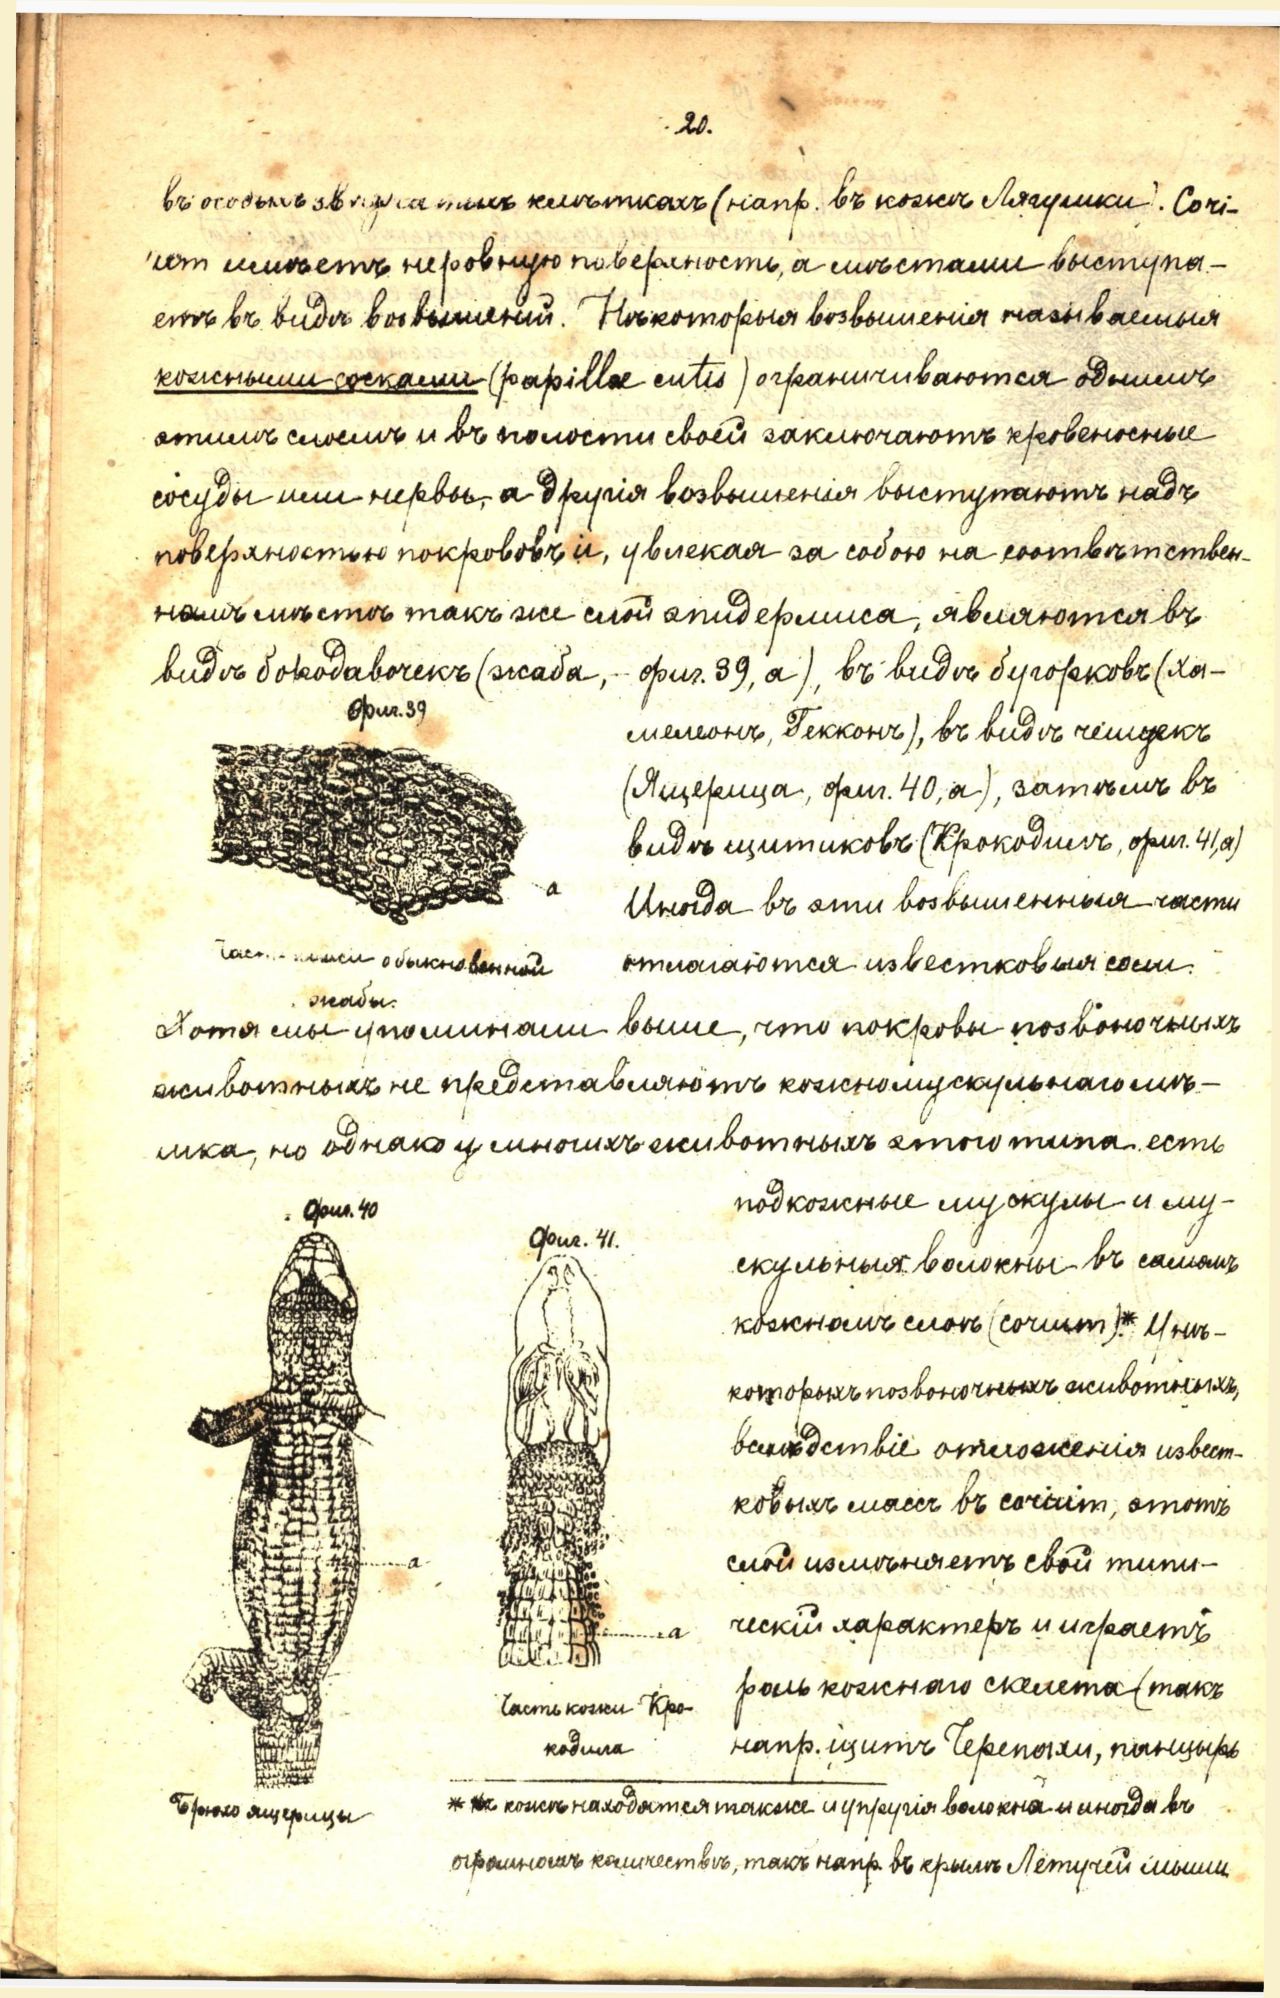 20.
въ особыхъ звѣздчатыхъ клѣткахъ (напр. въ кожѣ Лягушки). Cori-
um имѣетъ неровную поверхность, а мѣстами выступа-
етъ въ видѣ возвышеній. Нѣкоторыя возвышенія называемыя
кожными сосками (papillæ cutis) ограничиваются однимъ
этимъ слоемъ и въ полости своей заключаютъ кровеносные
сосуды или нервы, а другія возвышенія выступаютъ надъ
поверхностью покрововъ и, увлекая за собою на соотвѣтствен-
номъ мѣстѣ такъ же слой эпидермиса, являются въ
видѣ бородавочекъ (жаба, фиг. 39, а), въ видѣ бугорковъ (Ха-
мелеонъ, Гекконъ), въ видѣ чешуекъ
(Ящерица, фиг. 40, а), затѣмъ въ
видѣ щитиковъ (Крокодилъ, фиг. 41, а)
Иногда въ эти возвышенныя части
отлагаются известковыя соли.
Фиг. 39
а
обыкновенной
жабы.
Хотя мы упоминали выше, что покровы позвоночныхъ
животныхъ не представляютъ кожномускульнаго мѣ-
шка, но однако у многихъ животныхъ этого типа есть
подкожные мускулы и му-
скульныя волокны въ самомъ
кожномъ слоѣ (corium).* У нѣ-
которыхъ позвоночныхъ животныхъ,
вслѣдствіе отложенія извест-
ковыхъ массъ въ corium, этотъ
слой измѣняетъ свой типи-
ческій характеръ и играетъ
роль кожнаго скелета (такъ
напр. щитъ Черепахи, панцырь
Фиг. 40
а
Брюхо ящерицы
Фиг. 41.
а
Часть кожи Кро-
кодила
* Въ кожѣ находятся также и упругія волокна и иногда въ
огромномъ количествѣ, такъ напр. въ крылѣ Летучей мыши